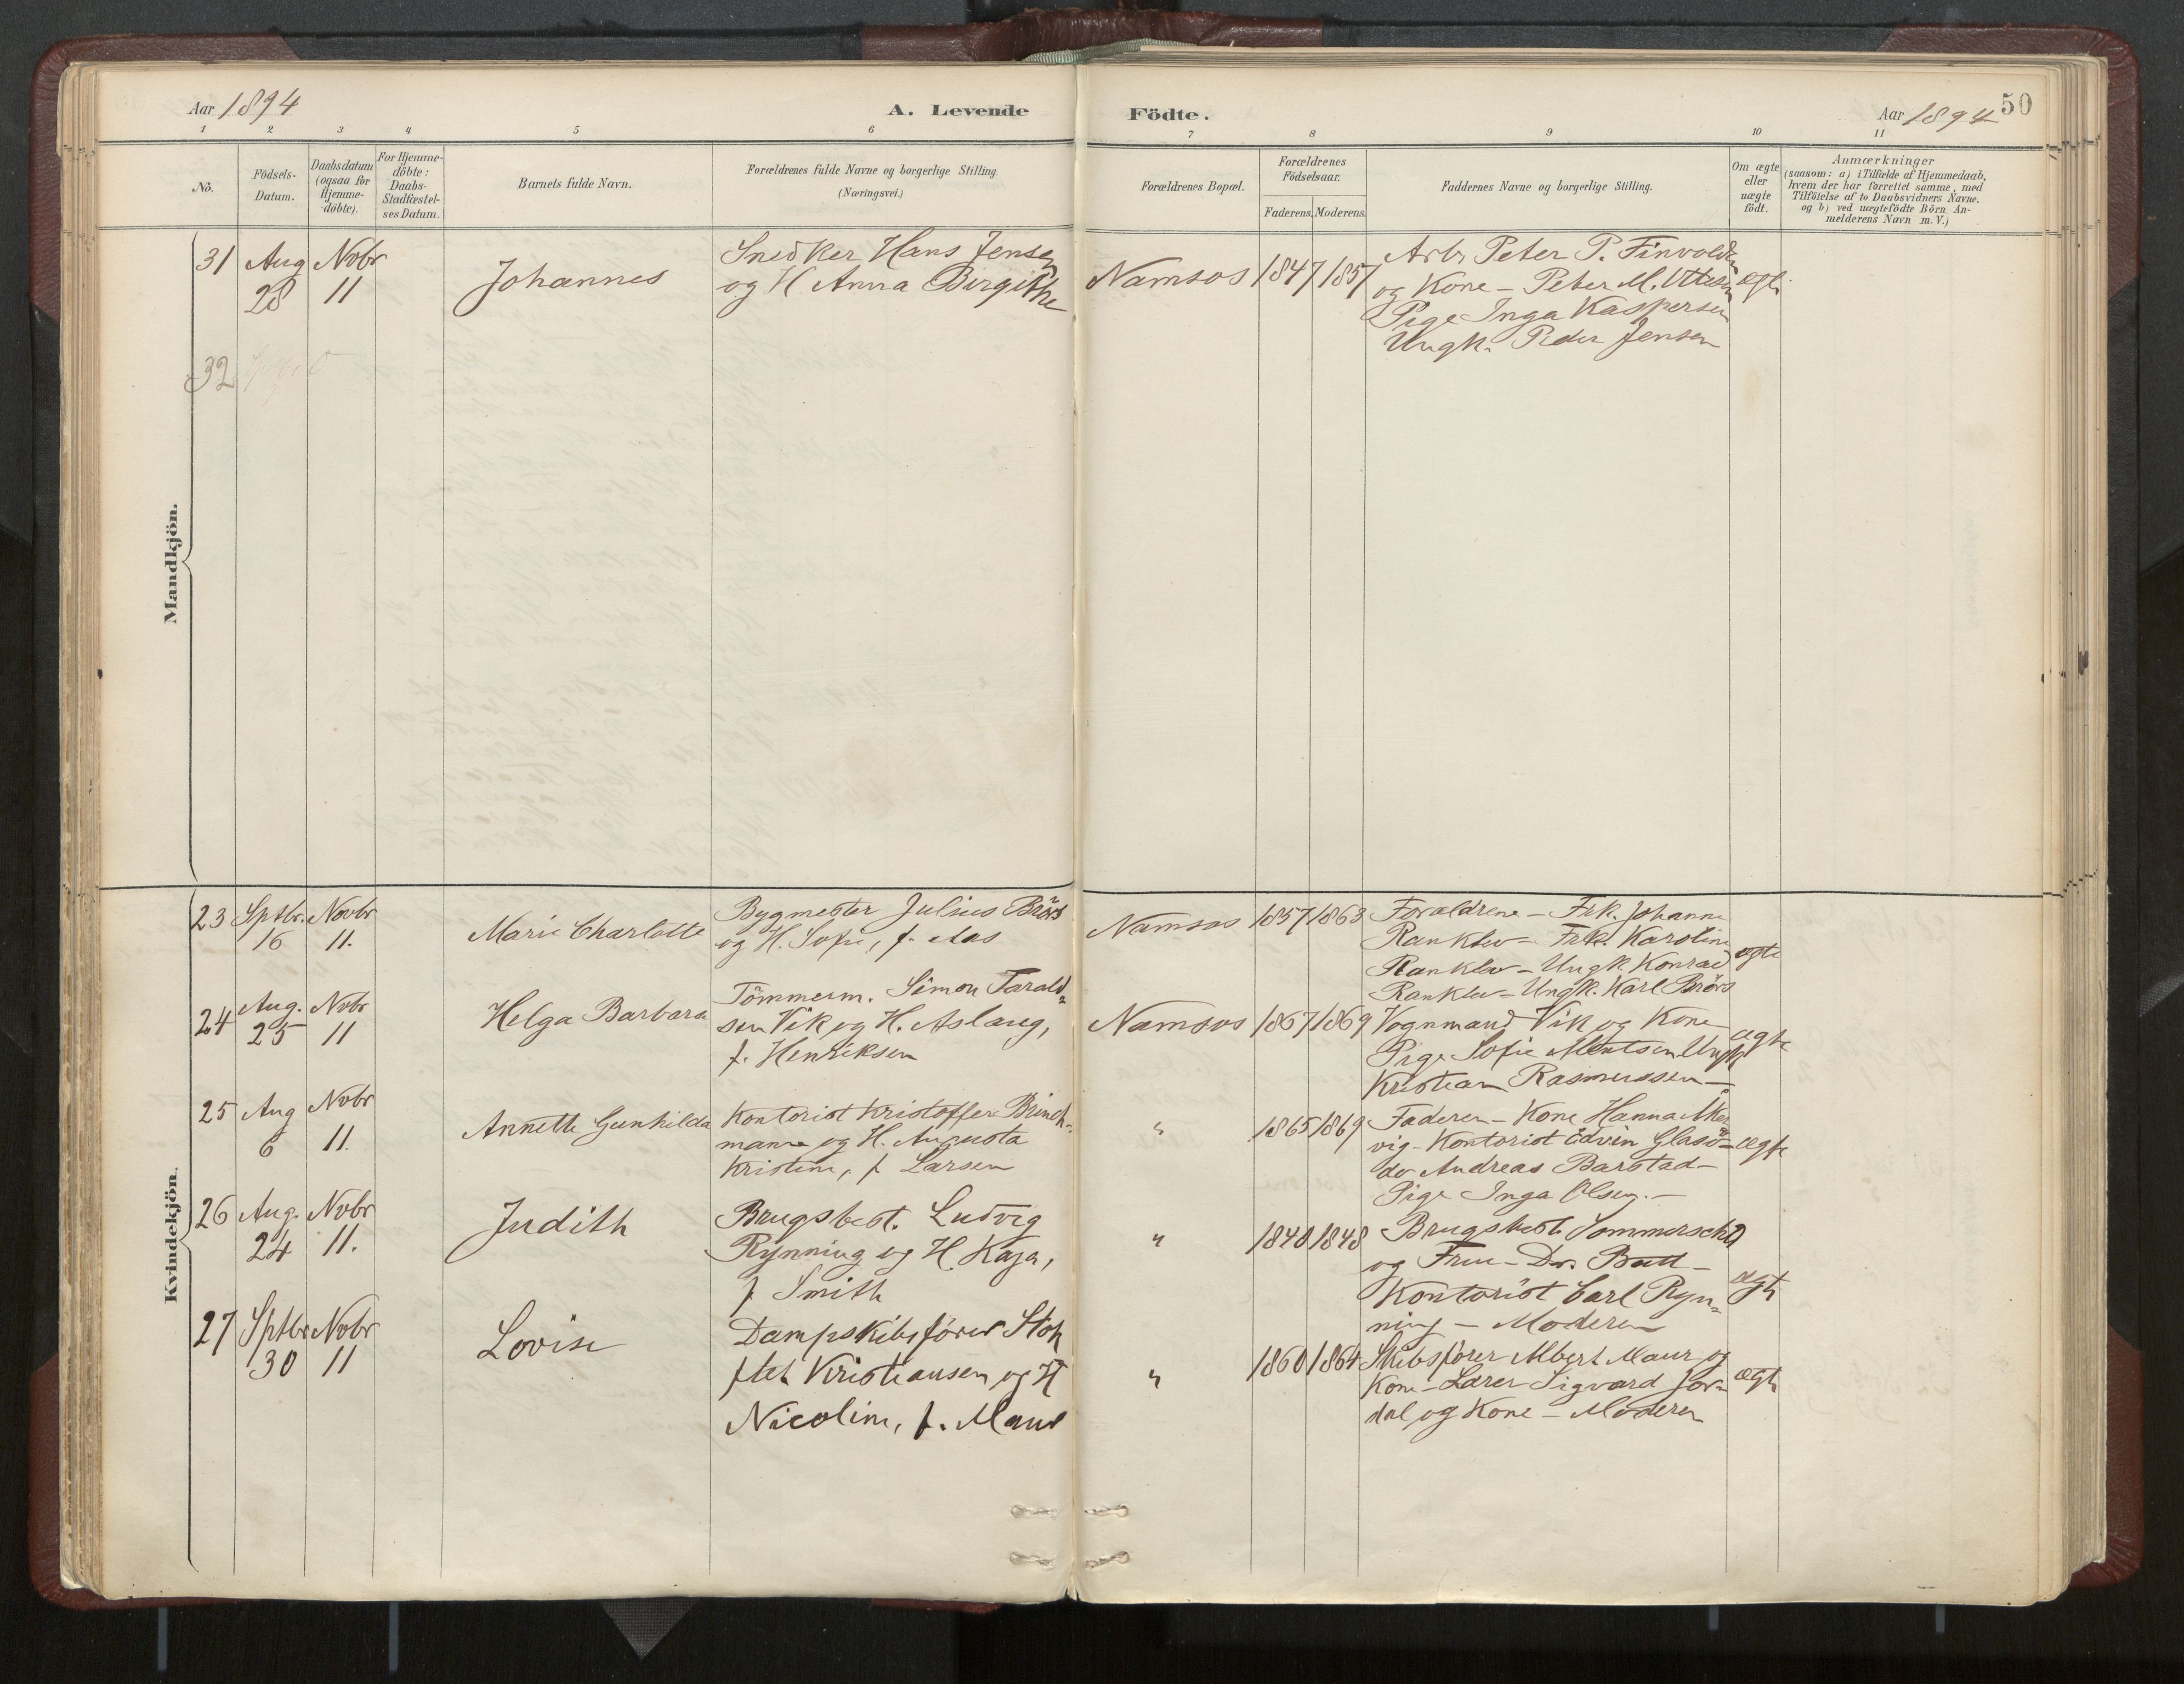 Aar 1894
A. Levende
Födte.
Aar 1894
50
1 2 3 4 5 6 7 8 9 10 11
No.
Födsels-
Datum.
Daabsdatum
(ogsaa for
Hjemme-
döbte).
For Hjemme-
döbte:
Daabs-
Stadfæstel-
ses Datum.
Barnets fulde Navn.
Forældrenes fulde Navne og borgerlige Stilling.
(Næringsvei.)
Forældrenes Bopæl.
Forældrenes
Födselsaar.
Faderens. Moderens.
Faddernes Navne og borgerlige Stilling.
Om ægte
eller
uægte
födt.
Anmærkninger
(saasom: a) i Tilfælde af Hjemmedaab,
hvem der har forrettet samme, med
Tilföielse af to Daabsvidners Navne,
og b) ved uægtefödte Börn An-
melderens Navn m. V.)
Mandkjön.
31
Aug
28
Nobr
11
Johannes
Snedker Hans Jensen
og H Anna Birgithe
Namsos
1847
1857
Arbr Peter P. Finvolden
og Kone - Peter M.
Pige Inga Kaspersen
Ungk. Peder Jensen
ægte
32
Kvindekjön.
23
Sptbr.
16
Novbr
11.
Marie Charlotte
Bygmester Julius Brörs
og H. Sofie, f. Aas
Namsos
1857
1863
Forældrene - Frk. Johanne
Ranklev - Frk. Karoline
Ranklev - Ungk. Konrad
Ranklev - Ungk. Karl Brörs
ægte
24
Aug.
25
Nobr
11
Helga Barbara
Tömmerm. Simon Tarald-
sen Vik og H. Aslaug,
f. Henriksen
Namsos
1867
1869
Vognmand Vik og Kone
Pige Sofie Mentsen Ungk
Kristian Rasmussen -
ægte
25
Aug
6
Nobr
11.
Annette Gunhilda
Kontorist Kristoffer Brinch-
mann og H. Augusta
Kristine, f Larsen
"
1865
1869
Faderen - Kone Hanna Aker
vig - Kontorist Edvin Glasö -
do Andreas Barstad -
Pige Inga Olsen. -
ægte
26
Aug.
24
Nobr
11.
Judith
Brugsbest. Ludvig
Rynning og H. Kaja,
f Smith
"
1840
1848
Brugsbest. Sommerschild
og Frue - Dr. Bull -
Kontorist Carl Ryn-
ning - Moderen
ægte
27
Sptbr
30
Nobr
11
Lovise
Dampskibsförer Stok
flet Kristiansen og H
Nicoline, f. Maur
"
1860
1864
Skibsförer Albert Maur og
Kone - Lærer Sigvard Jor-
dal og Kone - Moderen
ægte